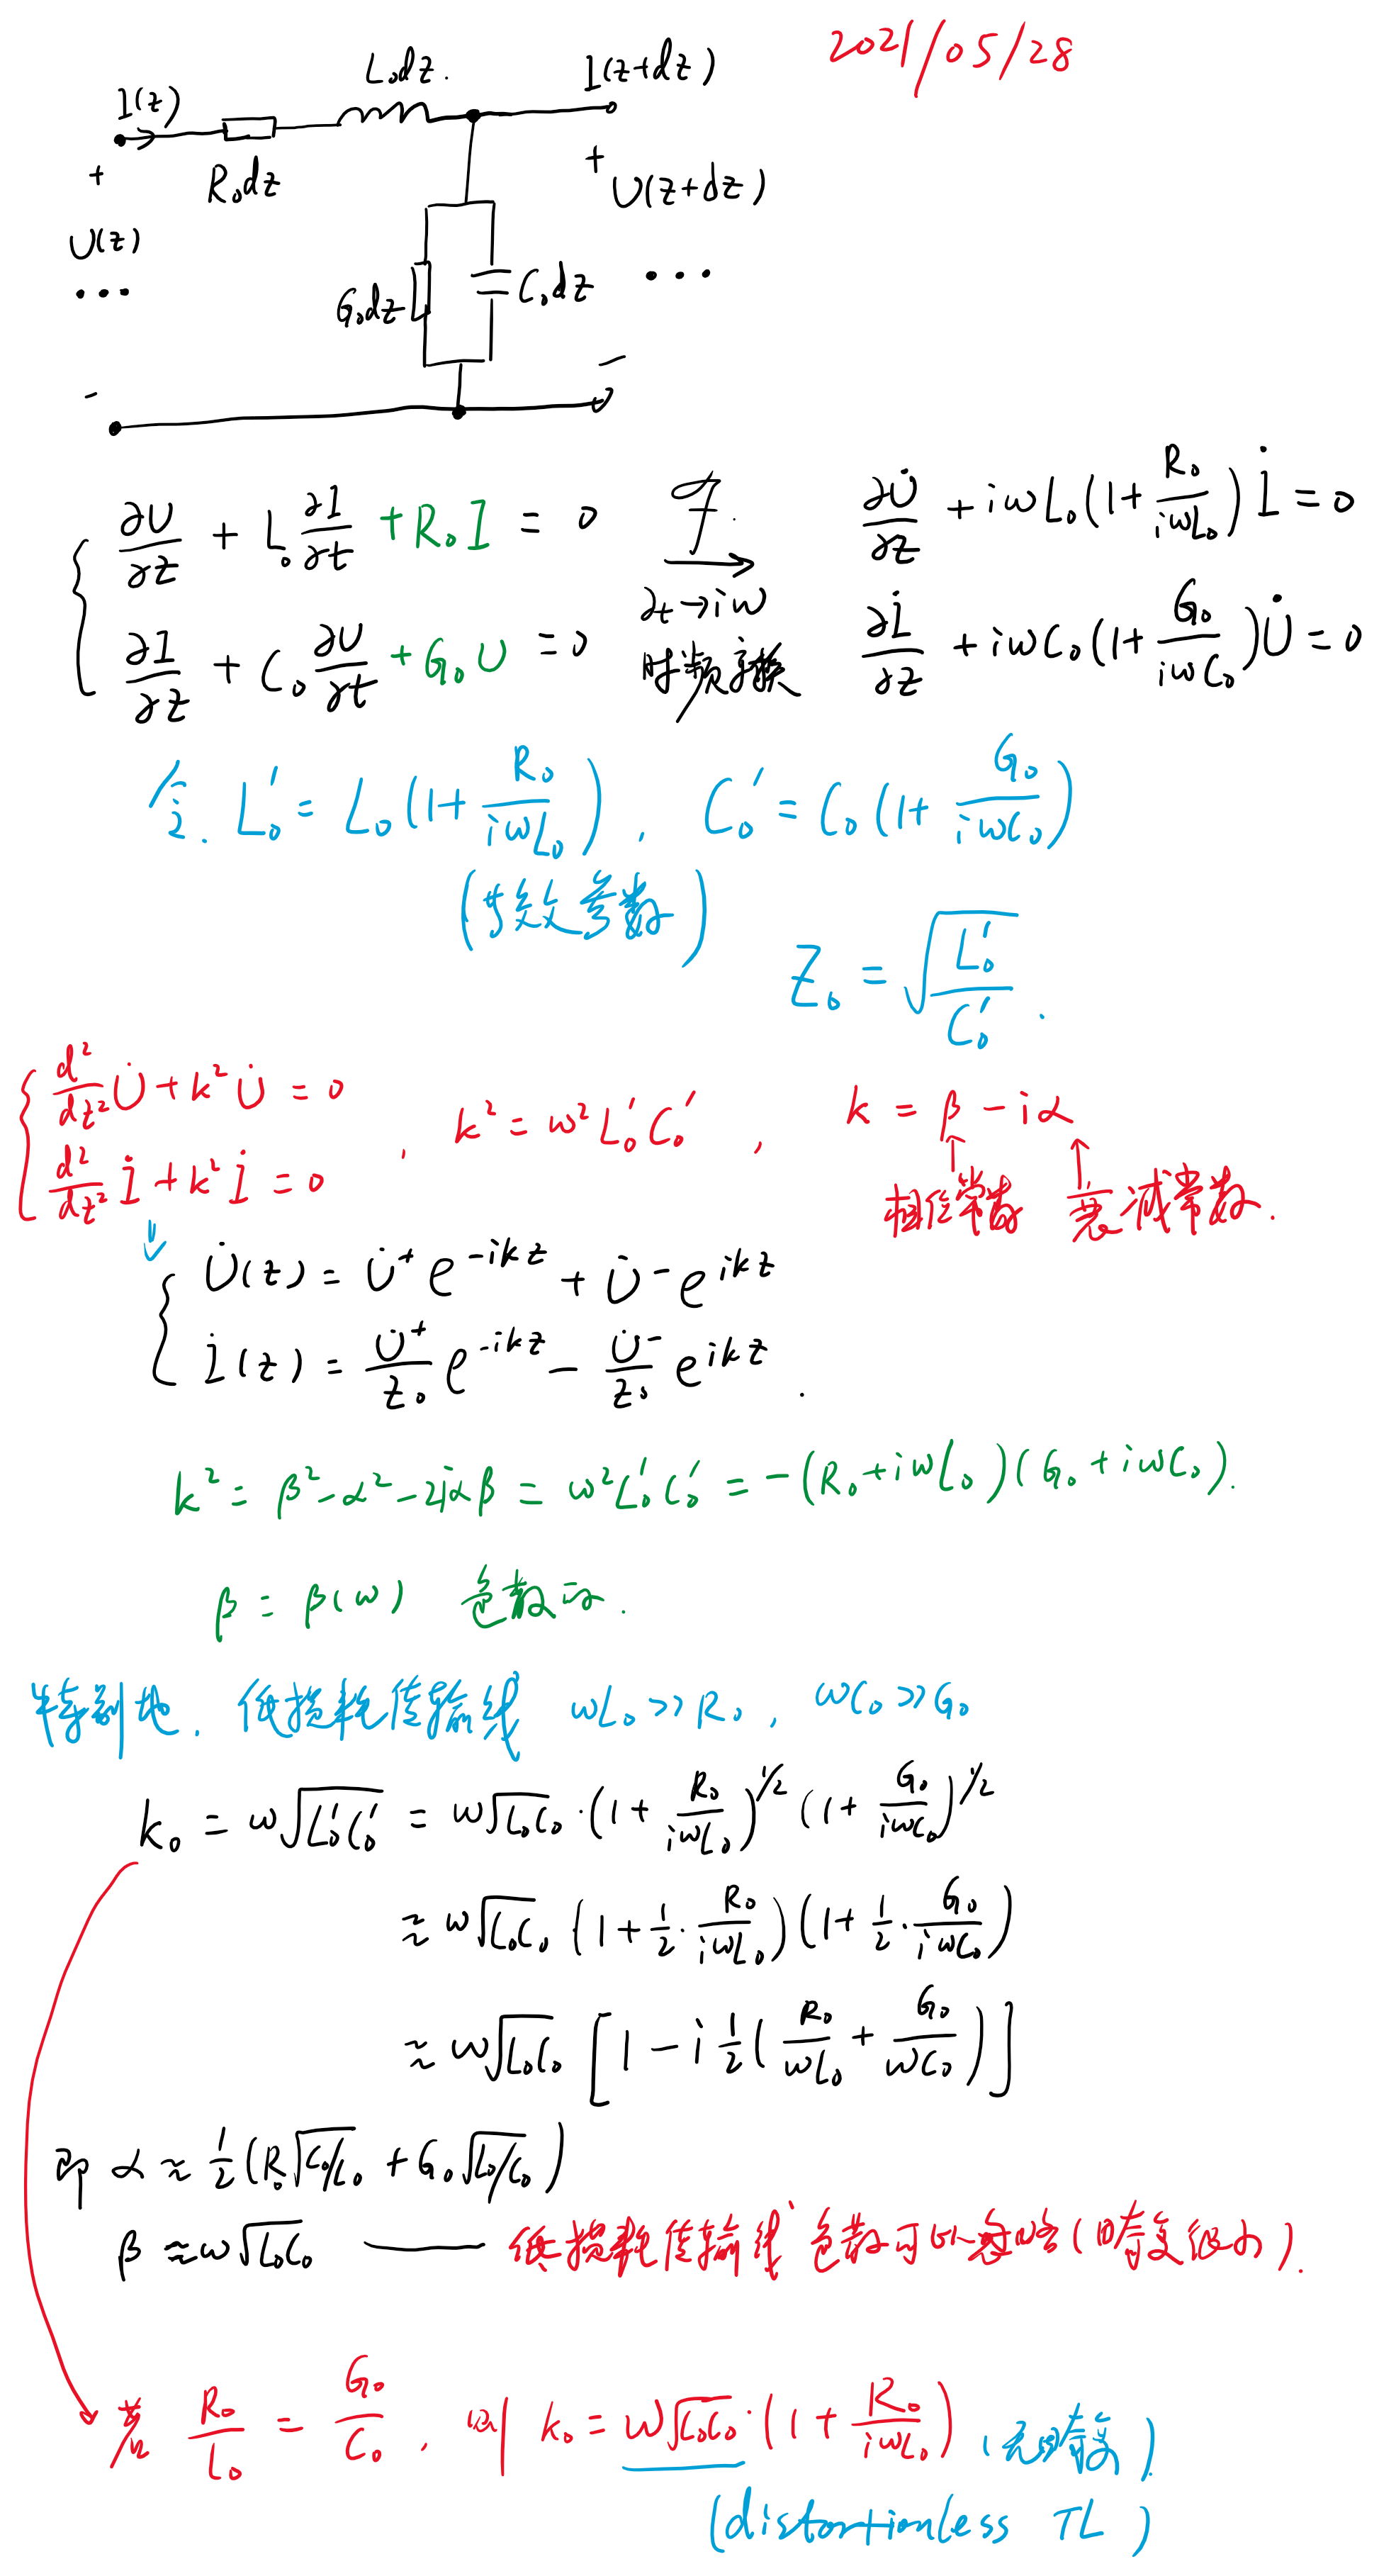 2021/05/28
I(z)
L₀dz.
I(z+dz)
+
R₀dz
+
U(z+dz)
U(z)
...
G₀dz
C₀dz
...
-
-
{ ∂U/∂z + L₀ ∂I/∂t + R₀I = 0
∂I/∂z + C₀ ∂U/∂t + G₀U = 0
ℱ.
∂t→iω
时频变换
∂U̇/∂z + iωL₀(1+R₀/(iωL₀)) İ = 0
∂İ/∂z + iωC₀(1+G₀/(iωC₀)) U̇ = 0
令. L₀' = L₀(1+R₀/(iωL₀)), C₀' = C₀(1+G₀/(iωC₀))
(等效参数)
Z₀ = √(L₀'/C₀').
{ d²/dz² U̇ + k²U̇ = 0
d²/dz² İ + k²İ = 0
, k² = ω²L₀'C₀', k = β - iα
↑相位常数 ↑衰减常数.
⇓
{ U̇(z) = U̇⁺e^{-ikz} + U̇⁻e^{ikz}
İ(z) = U̇⁺/Z₀ e^{-ikz} - U̇⁻/Z₀ e^{ikz}.
k² = β²-α²-2iαβ = ω²L₀'C₀' = -(R₀+iωL₀)(G₀+iωC₀).
β = β(ω) 色散的.
特别地. 低损耗传输线 ωL₀>>R₀, ωC₀>>G₀
k₀ = ω√(L₀'C₀') = ω√(L₀C₀)·(1+R₀/(iωL₀))^{1/2} (1+G₀/(iωC₀))^{1/2}
≈ ω√(L₀C₀) (1+1/2·R₀/(iωL₀))(1+1/2·G₀/(iωC₀))
≈ ω√(L₀C₀) [1-i 1/2(R₀/(ωL₀)+G₀/(ωC₀))]
即 α ≈ 1/2(R₀√(C₀/L₀) + G₀√(L₀/C₀))
β ≈ ω√(L₀C₀) —— 低损耗传输线色散可以忽略(畸变很小).
若 R₀/L₀ = G₀/C₀, 则 k₀ = ω√(L₀C₀)·(1+R₀/(iωL₀)) (无畸变)
(distortionless TL)